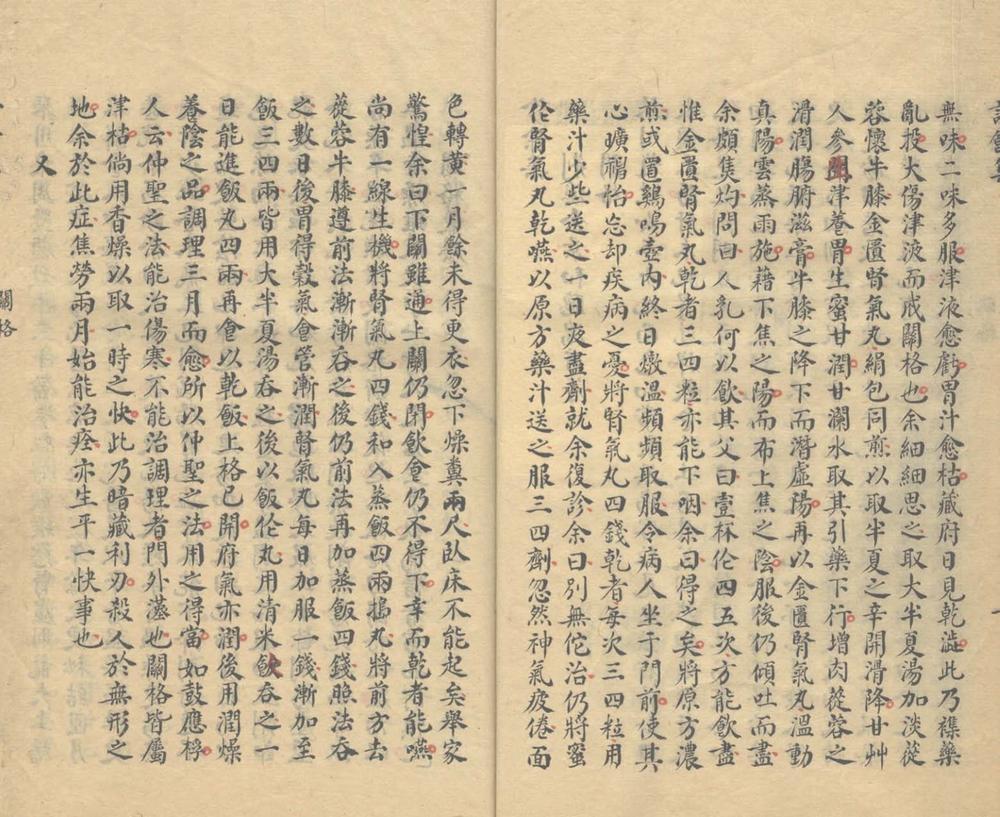 無味二味多服津液愈虧胃汁愈枯藏府日見乾澁此乃襍藥
亂投大傷津液而成關格也余細細思之取大半夏湯加淡蓯
蓉懷牛膝金匱腎氣丸絹包同煎以取半夏之辛開滑降甘艸
人參津養胃生蜜甘潤甘瀾水取其引藥下行增肉蓯蓉之
滑潤腸腑滋膏牛膝之降下而潛虛陽再以金匱腎氣丸溫動
真陽雲蒸雨施藉下焦之陽而布上焦之陰服後仍傾吐而盡
余頗焦灼問曰人乳何以飲其父曰壹杯佗四五次方能飲盡
惟金匱腎氣丸乾者三四粒亦能下咽余曰得之矣將原方濃
煎或置鷄鳴壺內終日燉溫頻頻取服令病人坐于門前使其
心曠神怡忘却疾病之憂將腎氣丸四錢乾者每次三四粒用
藥汁少些送之一日夜盡劑就余復診余曰別無佗治仍將蜜
佗腎氣丸乾嚥以原方藥汁送之服三四劑忽然神氣疲倦面
色轉黃一月餘未得更衣忽下燥糞兩尺臥床不能起矣舉家
驚惶余曰下關雖通上關仍閉飲食仍不得下幸而乾者能嚥
尚有一線生機將腎氣丸四錢和入蒸飯四兩搗丸將前方去
蓯蓉牛膝遵前法漸漸吞之後仍前法再加蒸飯四錢照法吞
之數日後胃得穀氣食管漸潤腎氣丸每日加服一錢漸加至
飯三四兩皆用大半夏湯吞之後以飯佗丸用清米飲吞之一
日能進飯丸四兩再食以乾飯上格已開府氣亦潤後用潤燥
養陰之品調理三月而愈所以仲聖之法用之得當如鼓應桴
人云仲聖之法能治傷寒不能治調理者門外漢也關格皆屬
津枯倘用香燥以取一時之快此乃暗藏利刃殺人於無形之
地余於此症焦勞兩月始能治痊亦生平一快事也
又
關格